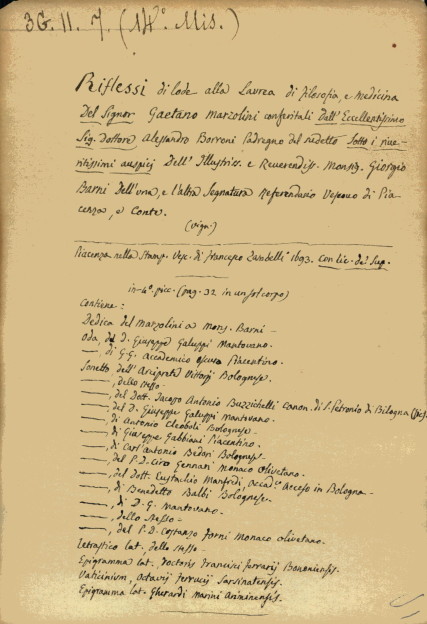 3G. II. 7. (14° Mis.)
Riflessi di lode alla Laurea di Filosofia, e Medicina
Del Signor Gaetano Marzolini conferitali Dall'Eccellentissimo
Sig. Dottore Alessandro Borroni Padregno del sudetto Sotto i rive-
ritissimi auspicj Dell'Illustriss. e Reverendis. Monsig. Giorgio
Barni Dell'una, e l'altra Segnatura Referendario Vescovo di Pia-
cenza, e Conte.
(vign.)
Piacenza nella Stamp. Vesc. di Francesco Zandelli 1693. con lic. de' Sup.
in-4°. picc. (pag. 32 in un sol corpo)
Contiene:
Dedica del Marzolini a Mons. Barni -
Oda, di D. Giuseppe Galuppi Mantovano.
—, di G. G. Accademico oscuro Piacentino.
Sonetto dell'Arciprete Vittorj Bolognese.
—, dello stesso -
—, del Dott. Jacopo Antonio Buzzichelli canon. di S. Petronio di Bilogna (sic).
—, del D. Giuseppe Galuppi Mantovano.
—, di Antonio Cleoboli Bolognese -
—, di Giuseppe Gabbiani Piacentino.
—, di Carl'Antonio Bedori Bolognese.
—, del P. D. Ciro Gennari Monaco Olivetano.
—, del Dott. Eustachio Manfredi, Accad.° Acceso in Bologna -
—, di Benedetto Balbi Bolognese.
—, di D. G. Mantovano.
—, dello stesso -
—, del P. D. Costanzo Forni Monaco olivetano.
Tetrastico lat. dello stesso -
Epigramma lat. Doctoris Francisci Ferrarij Bononiensis.
Vaticinium, Octavij Ferrucij Sarsinatensis.
Epigramma lat. Gherardi Marini Ariminensis.